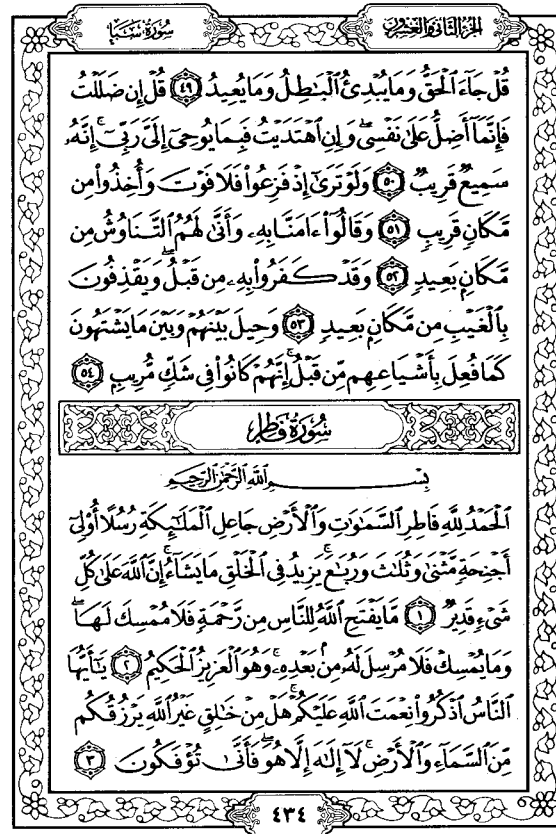 سُورَةُ سَبَإٍ
الجزء الثاني والعشرون
قُلْ جَآءَ ٱلْحَقُّ وَمَا يُبْدِئُ ٱلْبَٰطِلُ وَمَا يُعِيدُ ٤٩ قُلْ إِن ضَلَلْتُ
فَإِنَّمَآ أَضِلُّ عَلَىٰ نَفْسِى ۖ وَإِنِ ٱهْتَدَيْتُ فَبِمَا يُوحِىٓ إِلَىَّ رَبِّىٓ ۚ إِنَّهُۥ
سَمِيعٌ قَرِيبٌ ٥٠ وَلَوْ تَرَىٰٓ إِذْ فَزِعُوا۟ فَلَا فَوْتَ وَأُخِذُوا۟ مِن
مَّكَانٍ قَرِيبٍ ٥١ وَقَالُوٓا۟ ءَامَنَّا بِهِۦ وَأَنَّىٰ لَهُمُ ٱلتَّنَاوُشُ مِن
مَّكَانٍۭ بَعِيدٍ ٥٢ وَقَدْ كَفَرُوا۟ بِهِۦ مِن قَبْلُ ۖ وَيَقْذِفُونَ
بِٱلْغَيْبِ مِن مَّكَانٍۭ بَعِيدٍ ٥٣ وَحِيلَ بَيْنَهُمْ وَبَيْنَ مَا يَشْتَهُونَ
كَمَا فُعِلَ بِأَشْيَاعِهِم مِّن قَبْلُ ۚ إِنَّهُمْ كَانُوا۟ فِى شَكٍّ مُّرِيبٍۭ ٥٤
سُورَةُ فَاطِرٍ
بِسْمِ ٱللَّهِ ٱلرَّحْمَٰنِ ٱلرَّحِيمِ
ٱلْحَمْدُ لِلَّهِ فَاطِرِ ٱلسَّمَٰوَٰتِ وَٱلْأَرْضِ جَاعِلِ ٱلْمَلَٰٓئِكَةِ رُسُلًا أُو۟لِىٓ
أَجْنِحَةٍ مَّثْنَىٰ وَثُلَٰثَ وَرُبَٰعَ ۚ يَزِيدُ فِى ٱلْخَلْقِ مَا يَشَآءُ ۚ إِنَّ ٱللَّهَ عَلَىٰ كُلِّ
شَىْءٍ قَدِيرٌ ١ مَّا يَفْتَحِ ٱللَّهُ لِلنَّاسِ مِن رَّحْمَةٍ فَلَا مُمْسِكَ لَهَا ۖ
وَمَا يُمْسِكْ فَلَا مُرْسِلَ لَهُۥ مِنۢ بَعْدِهِۦ ۚ وَهُوَ ٱلْعَزِيزُ ٱلْحَكِيمُ ٢ يَٰٓأَيُّهَا
ٱلنَّاسُ ٱذْكُرُوا۟ نِعْمَتَ ٱللَّهِ عَلَيْكُمْ ۚ هَلْ مِنْ خَٰلِقٍ غَيْرُ ٱللَّهِ يَرْزُقُكُم
مِّنَ ٱلسَّمَآءِ وَٱلْأَرْضِ ۚ لَآ إِلَٰهَ إِلَّا هُوَ ۖ فَأَنَّىٰ تُؤْفَكُونَ ٣
٤٣٤